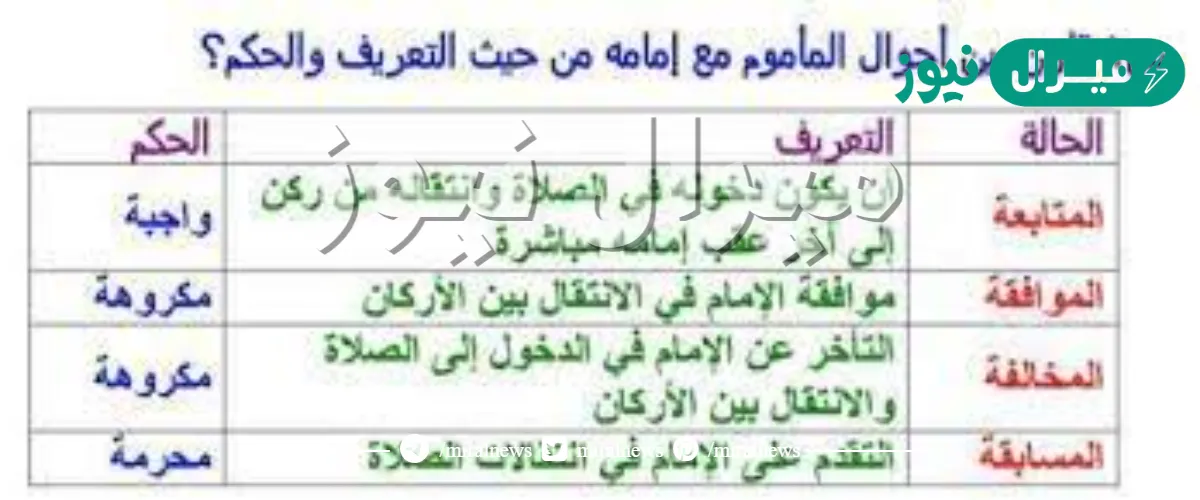 أحوال المأموم مع إمامه من حيث التعريف والحكم؟
ميرال نيوز
الحالة التعريف الحكم
المتابعة أن يكون دخوله في الصلاة وانتقاله من ركن واجبة
إلى آخر عقب إمامه مباشرة
الموافقة موافقة الإمام في الانتقال بين الأركان مكروهة
المخالفة التأخر عن الإمام في الدخول إلى الصلاة مكروهة
والانتقال بين الأركان
المسابقة التقدم على الإمام في انتقالات الصلاة محرمة
ميرال نيوز
/miralnews /miralnews /miralnews